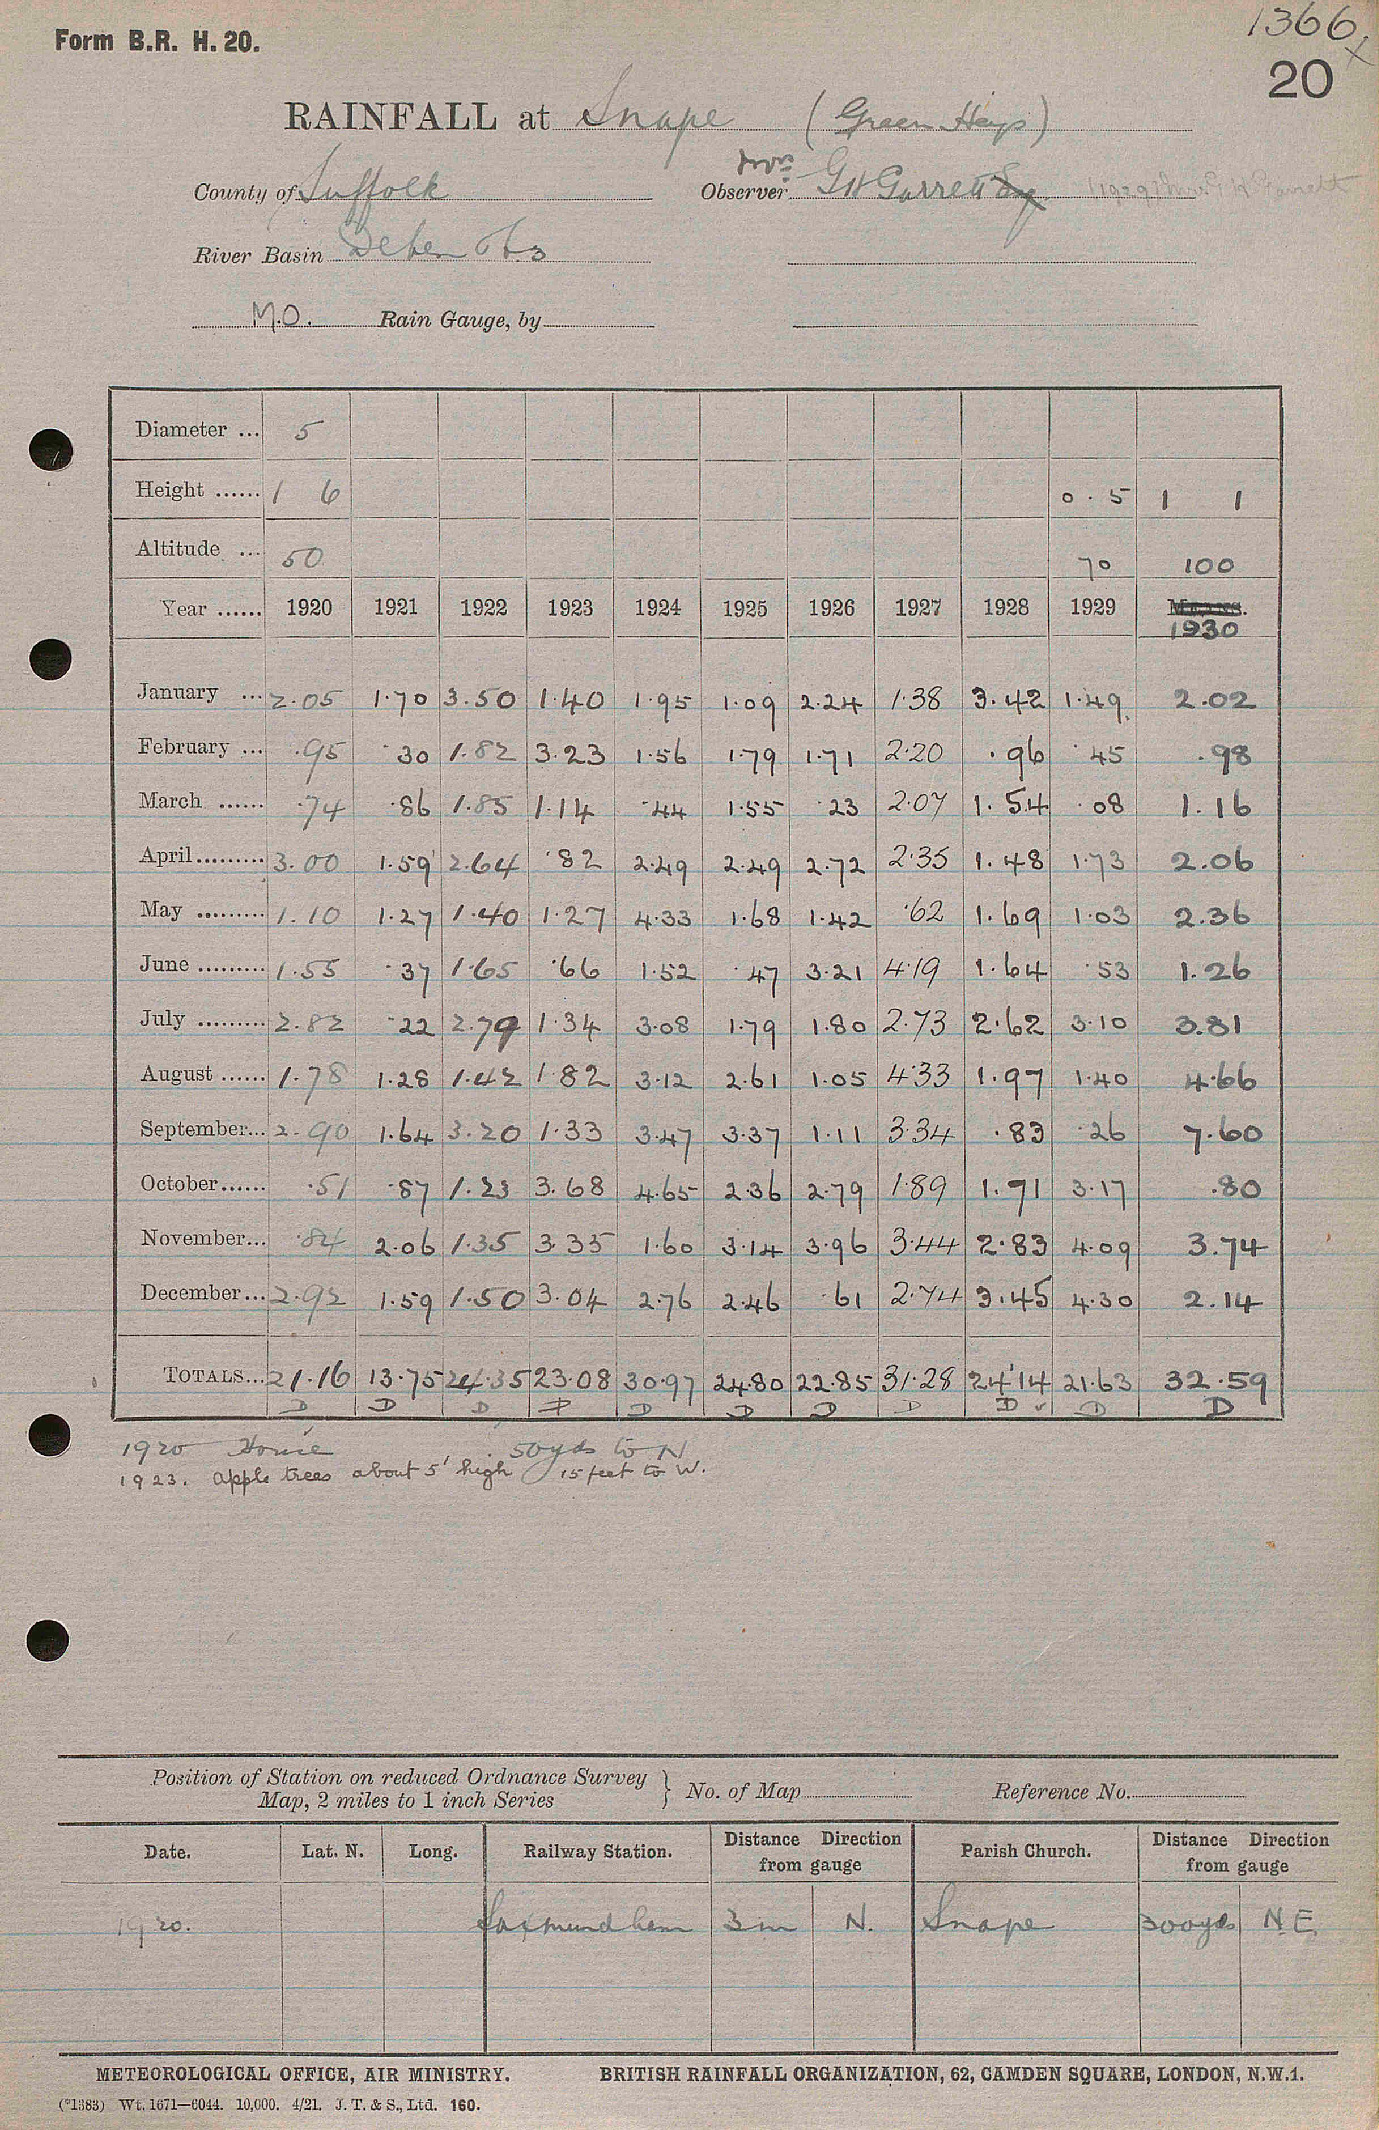 Form B.R. H. 20.
1366
20
RAINFALL at Snape (Green Heys)
County of Suffolk
Mrs
Observer G H Garrett Esq
River Basin Deben
M.O. Rain Gauge, by
Diameter ... 5
Height ...... 1 6 0.5 1 1
Altitude ... 50 70 100
Year ...... 1920 1921 1922 1923 1924 1925 1926 1927 1928 1929 MEANS.
1930
January ... 2.05 1.70 3.50 1.40 1.95 1.09 2.24 1.38 3.42 1.49 2.02
February ... .95 .30 1.82 3.23 1.56 1.79 1.71 2.20 .96 .45 .98
March ...... .74 .86 1.85 1.14 .44 1.55 .23 2.07 1.54 .08 1.16
April ......... 3.00 1.59 2.64 .82 2.49 2.49 2.72 2.35 1.48 1.73 2.06
May ......... 1.10 1.27 1.40 1.27 4.33 1.68 1.42 .62 1.69 1.03 2.36
June ......... 1.55 .37 1.65 .66 1.52 .47 3.21 4.19 1.64 .53 1.26
July ......... 2.82 .22 2.79 1.34 3.08 1.79 1.80 2.73 2.62 3.10 3.81
August ...... 1.78 1.28 1.42 1.82 3.12 2.61 1.05 4.33 1.97 1.40 4.66
September... 2.90 1.64 3.20 1.33 3.47 3.37 1.11 3.34 .83 .26 7.60
October...... .51 .87 1.23 3.68 4.65 2.36 2.79 1.89 1.71 3.17 .80
November... .84 2.06 1.35 3.35 1.60 3.14 3.96 3.44 2.83 4.09 3.74
December... 2.92 1.59 1.50 3.04 2.76 2.46 .61 2.74 3.45 4.30 2.14
TOTALS... 21.16 13.75 24.35 23.08 30.97 24.80 22.85 31.28 24.14 21.63 32.59
D D D D D D D D D D D
1920 House 50yds to N
1923. apple trees about 5' high 15 feet to W.
Position of Station on reduced Ordnance Survey
Map, 2 miles to 1 inch Series } No. of Map Reference No.
Date. Lat. N. Long. Railway Station. Distance Direction from gauge Parish Church. Distance Direction from gauge
1920. Saxmundham 3m N. Snape 300yds NE
METEOROLOGICAL OFFICE, AIR MINISTRY. BRITISH RAINFALL ORGANIZATION, 62, CAMDEN SQUARE, LONDON, N.W.1.
(*1383) Wt. 1671—6044. 10,000. 4/21. J. T. & S., Ltd. 160.